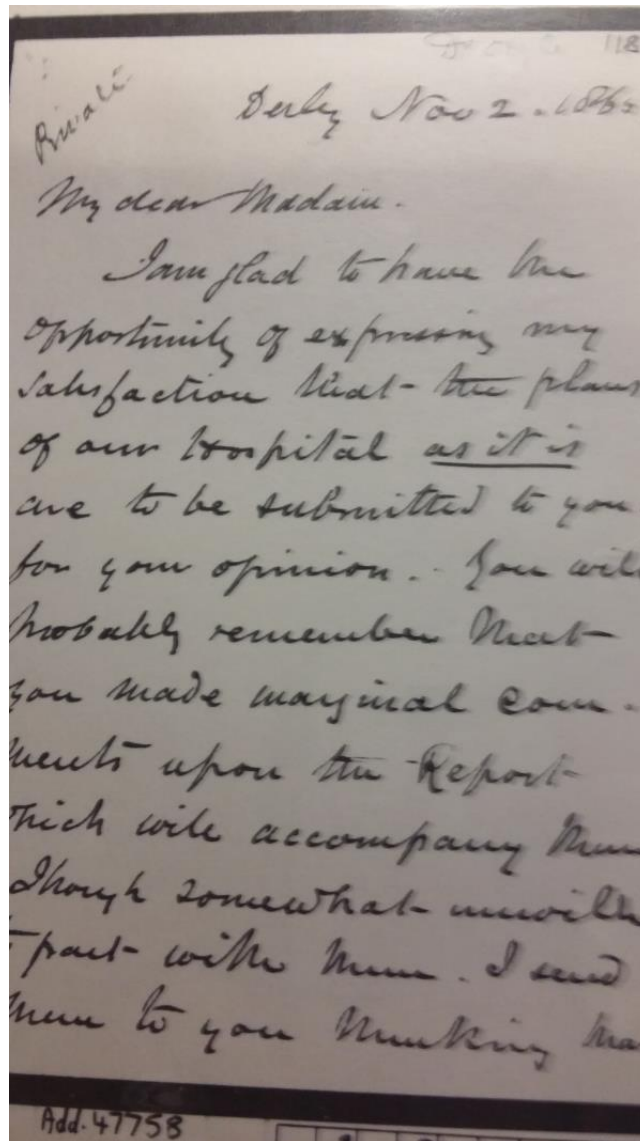 118
Private
Derby Nov 2. 186
My dear Madam.
I am glad to have the
opportunity of expressing my
satisfaction that the plans
of our Hospital as it is
are to be submitted to you
for your opinion. You will
probably remember that
you made marginal com-
ments upon the Report
which will accompany them
Though somewhat unwill
part with them. I send
them to you thinking tha
Add. 47758